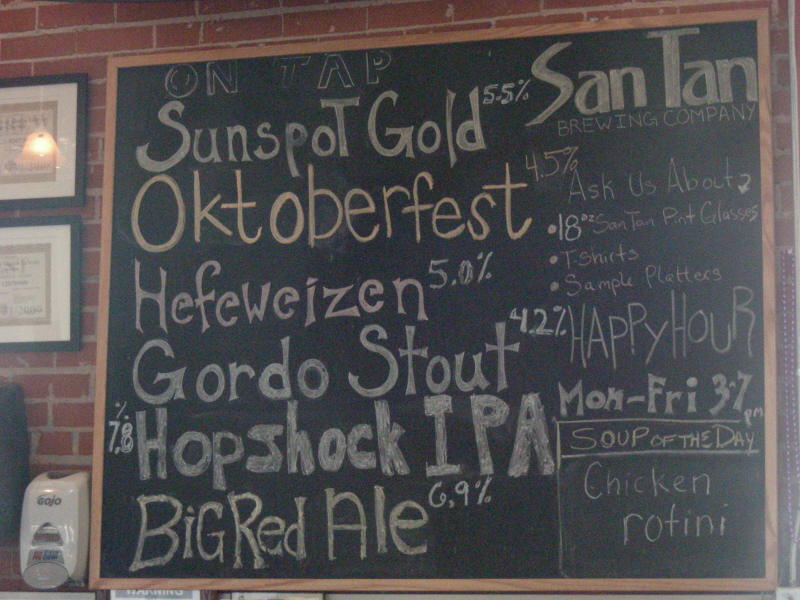 ON TAP
Sunspot Gold 5.5%
Oktoberfest 4.5%
Hefeweizen 5.0%
Gordo Stout 4.2%
7.8% Hopshock IPA
Big Red Ale 6.9%
San Tan
BREWING COMPANY
Ask Us About
• 18oz San Tan Pint Glasses
• T-Shirts
• Sample Platters
HAPPY HOUR
Mon-Fri 3-7pm
SOUP OF THE DAY
Chicken
rotini
GOJO
WARNING